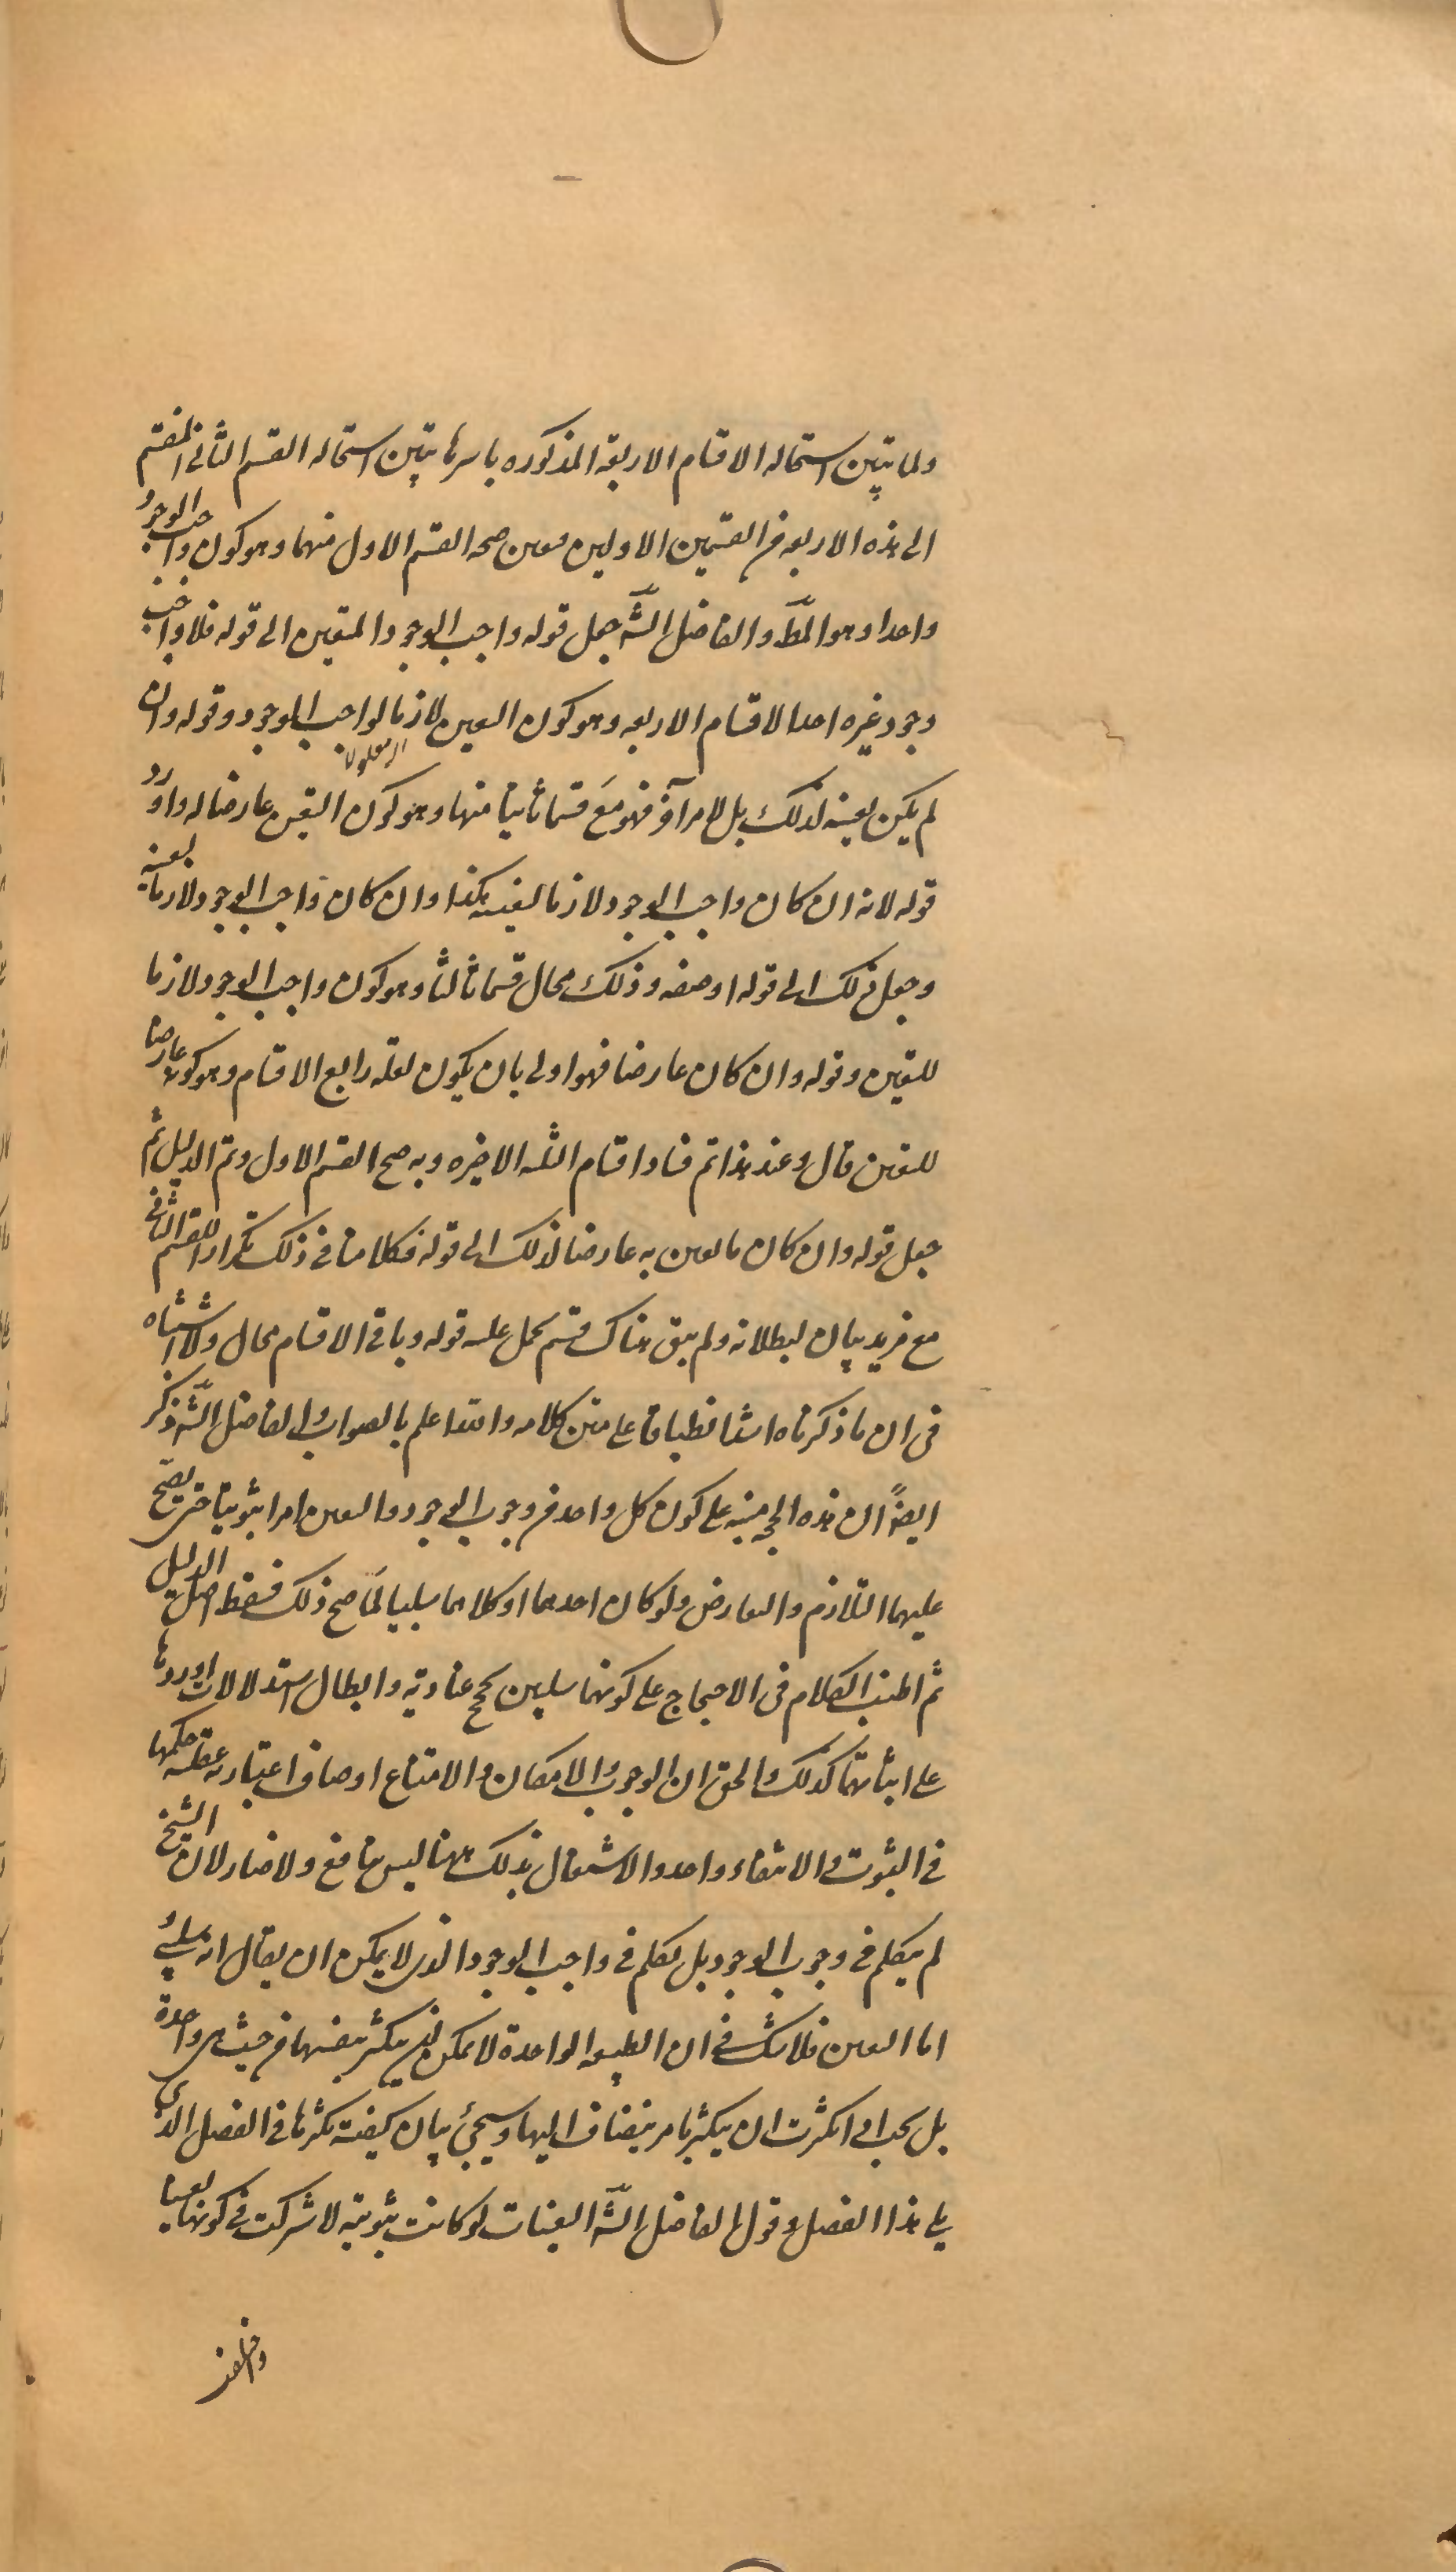 ولما تبين استحاله الاقسام الاربعة المذكوره باسرها تبين استحاله القسم الثانى المنقسم
الى هذه الاربعه من القسمين الاولين وتعين صحه القسم الاول منهما وهو كون واجب الوجود
واحدا وهو المط والفاضل الشه جعل قوله واجب الوجود المتعين الى قوله فلا واجب
وجود غيره احد الاقسام الاربعه وهو كون التعين لازما لواجب الوجود وقوله وان
لم يكن تعينه لذلك بل لامر آخر فهو مع قسما ثانيا منها وهو كون التعين عارضا له واورد
قوله لانه ان كان واجب الوجود لازما لتعينه هكذا وان كان واجب الوجود لازما لتعينه
وجعل ذلك الى قوله او صفه وذلك محال قسما ثالثا وهو كون واجب الوجود لازما
للتعين وقوله وان كان عارضا فهو اولى بان يكون لعله رابع الاقسام وهو كونه عارضا
للتعين قال وعند هذا تم فساد اقسام الثلثه الاخيره وبه صح القسم الاول وتم الدليل ثم
جعل قوله وان كان ما تعين به عارضا لذلك الى قوله فكلامنا فى ذلك تكرارا للقسم الثانى
مع مزيد بيان لبطلانه ولم يبق هناك قسم يحمل عليه قوله وباقى الاقسام محال ولا اشتباه
فى ان ما ذكرناه اشد انطباقا على متن كلامه والله اعلم بالصواب والفاضل الشه ذكر
ايضاً ان هذه الحجه مبنيه على كون كل واحد من وجوب الوجود والتعين امرا ثبوتيا حتى يصح
عليهما التلازم والتعارض ولو كان احدهما او كلاهما سلبيا لما صح ذلك فسقط اصل الدليل
ثم اطنب الكلام فى الاحتجاج على كونهما سلبيين بحجج عنادية وابطال استدلالات اوردها
على اثباتهما كذلك والحق ان الوجوب والامكان والامتناع اوصاف اعتباريه عقليه حكمها
فى الثبوت والانتفاء واحد والاشتغال بذلك ههنا ليس بنافع ولا ضار لان الشيخ
لم يتكلم فى وجوب الوجود بل تكلم فى واجب الوجود الذى لا يمكن ان يقال انه سلبى
اما التعين فلا شك فى ان الطبيعه الواحدة لا يمكن ان يتكثر بنفسها من حيث هى واحدة
بل يجب اى اكثرت ان يتكثر بامر ينضاف اليها وسيجئ بيان كيفيه تكثرها فى الفصل الذى
يلى هذا الفصل وقول الفاضل الشه التعينات لو كانت ثبوتية لاشركت فى كونها تعينا